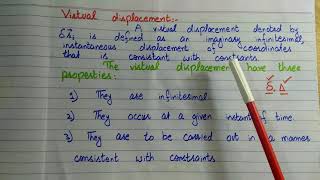 Virtual displacement:-
A virtual displacement denoted by
δr̄i, is defined as an imaginary infinitesimal,
instantaneous displacement of coordinates
that is consistent with constraints.
The virtual displacement have three
properties:
δ, Δ
1) They are infinitesimal.
2) They occur at a given instant of time.
3) They are to be carried out in a manner
consistent with constraints